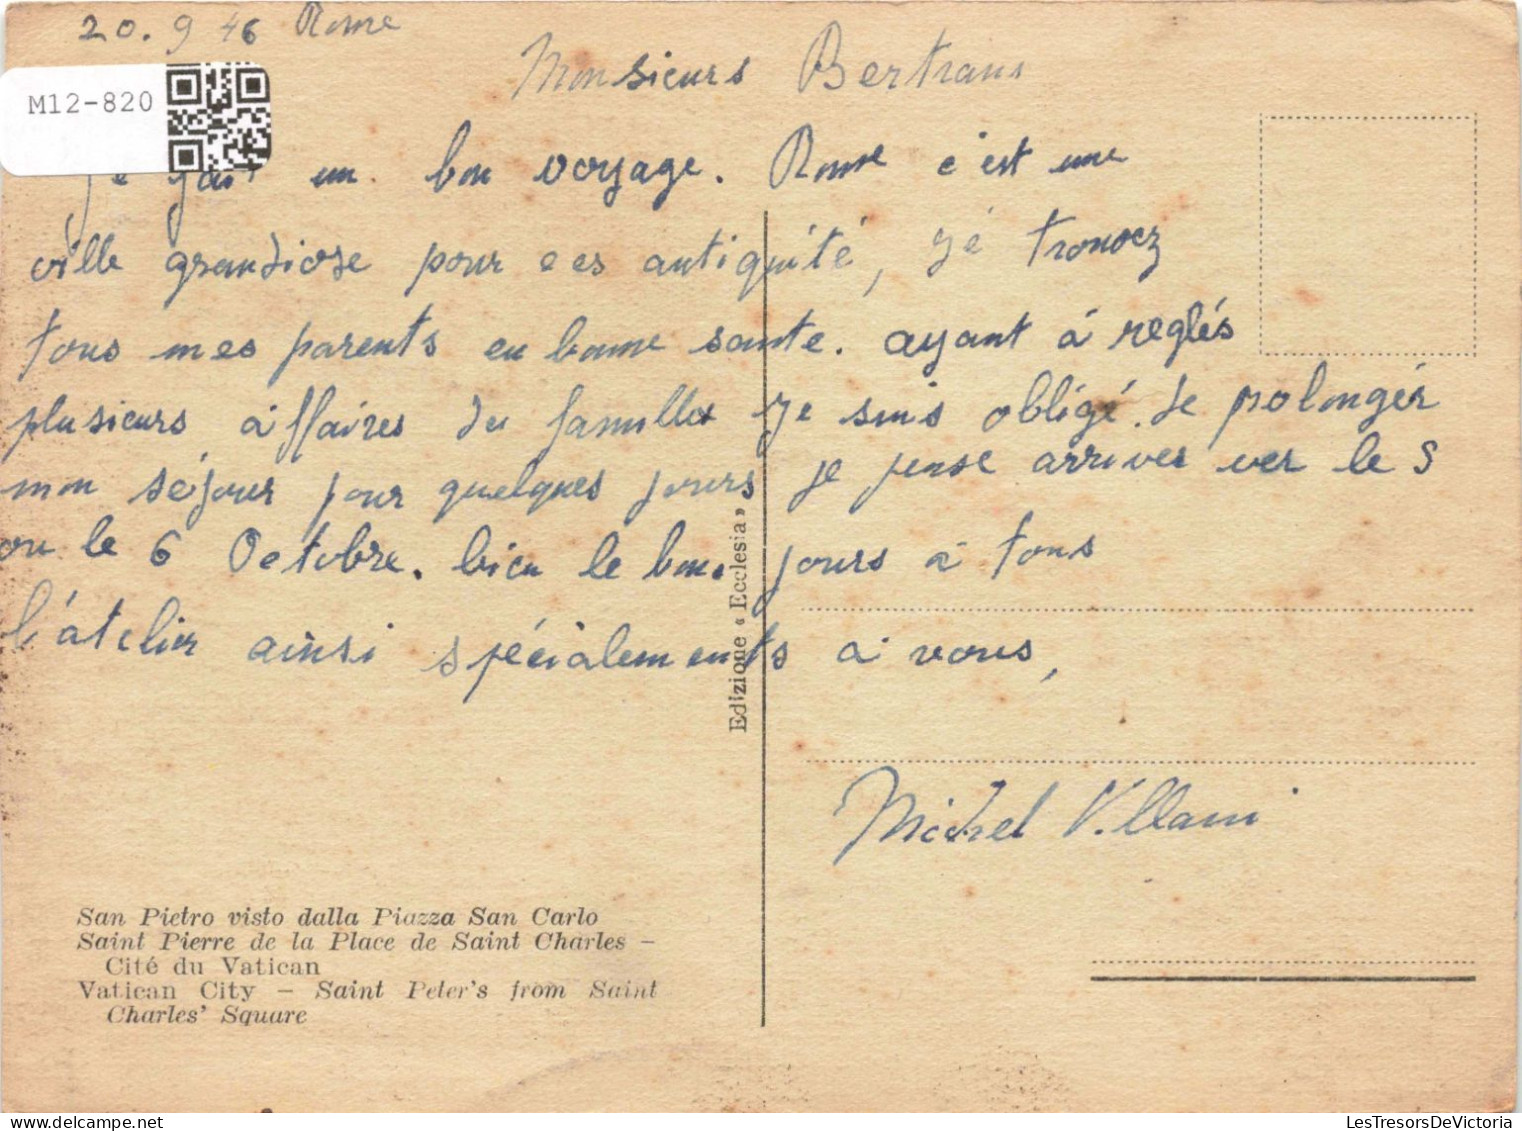 20. 9 46 Rome
Monsieurs Bertrans
M12-820
Je fait un bon voyage. Rome c'est une
ville grandiose pour ces antiquité, jé trouvez
tous mes parents en bonne sante. ayant à reglés
plusieurs affaires de familles Je suis obligé de polongér
mon séjour pour quelques jours je pense arriver ver le 5
ou le 6 Octobre. bien le bon. jours à tous
l'átelier ainsi spécialements a vous,
Michel Villani
Edizione « Ecclesia »
San Pietro visto dalla Piazza San Carlo
Saint Pierre de la Place de Saint Charles –
Cité du Vatican
Vatican City – Saint Peter's from Saint
Charles' Square
LesTresorsDeVictoria